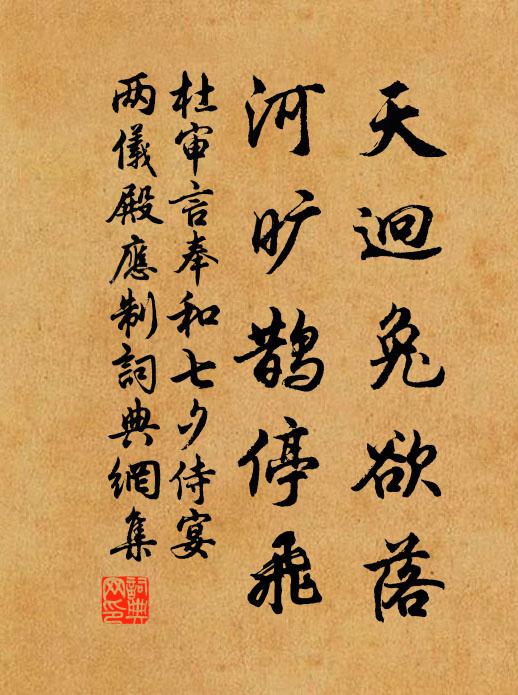 天迥兔欲落
河旷鹊停飛
杜审言奉和七夕侍宴
两儀殿應制詞典網集
詞典網印